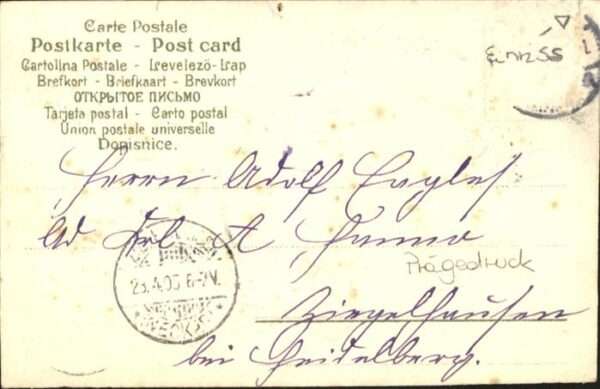 Carte Postale
Postkarte - Post card
Cartolina Postale - Levelező-Lap
Brefkort - Briefkaart - Brevkort
ОТКРЫТОЕ ПИСЬМО
Tarjeta postal - Carto postal
Union postale universelle
Dopisnice.
Herrn Adolf
Prägedruck
Ziegelhausen
bei Heidelberg.